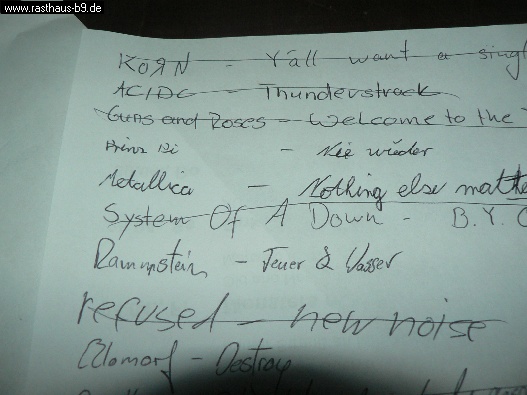 www.rasthaus-b9.de
KoЯN - Y'all want a singl
AC/DC - Thunderstrack
Guns and Roses - Welcome to the
Prinz Pi - Nie wieder
Metallica - Nothing else matte
System Of A Down - B.Y.O
Rammstein - Feuer & Wasser
refused - new noise
- Destroy